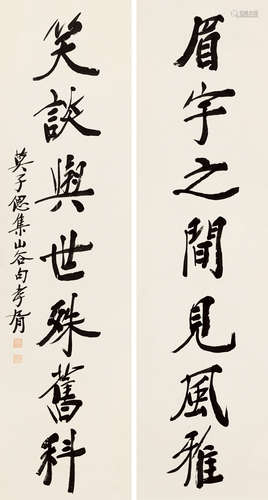 眉宇之間見風雅
笑談與世殊舊科
莫子偲集山谷句孝胥